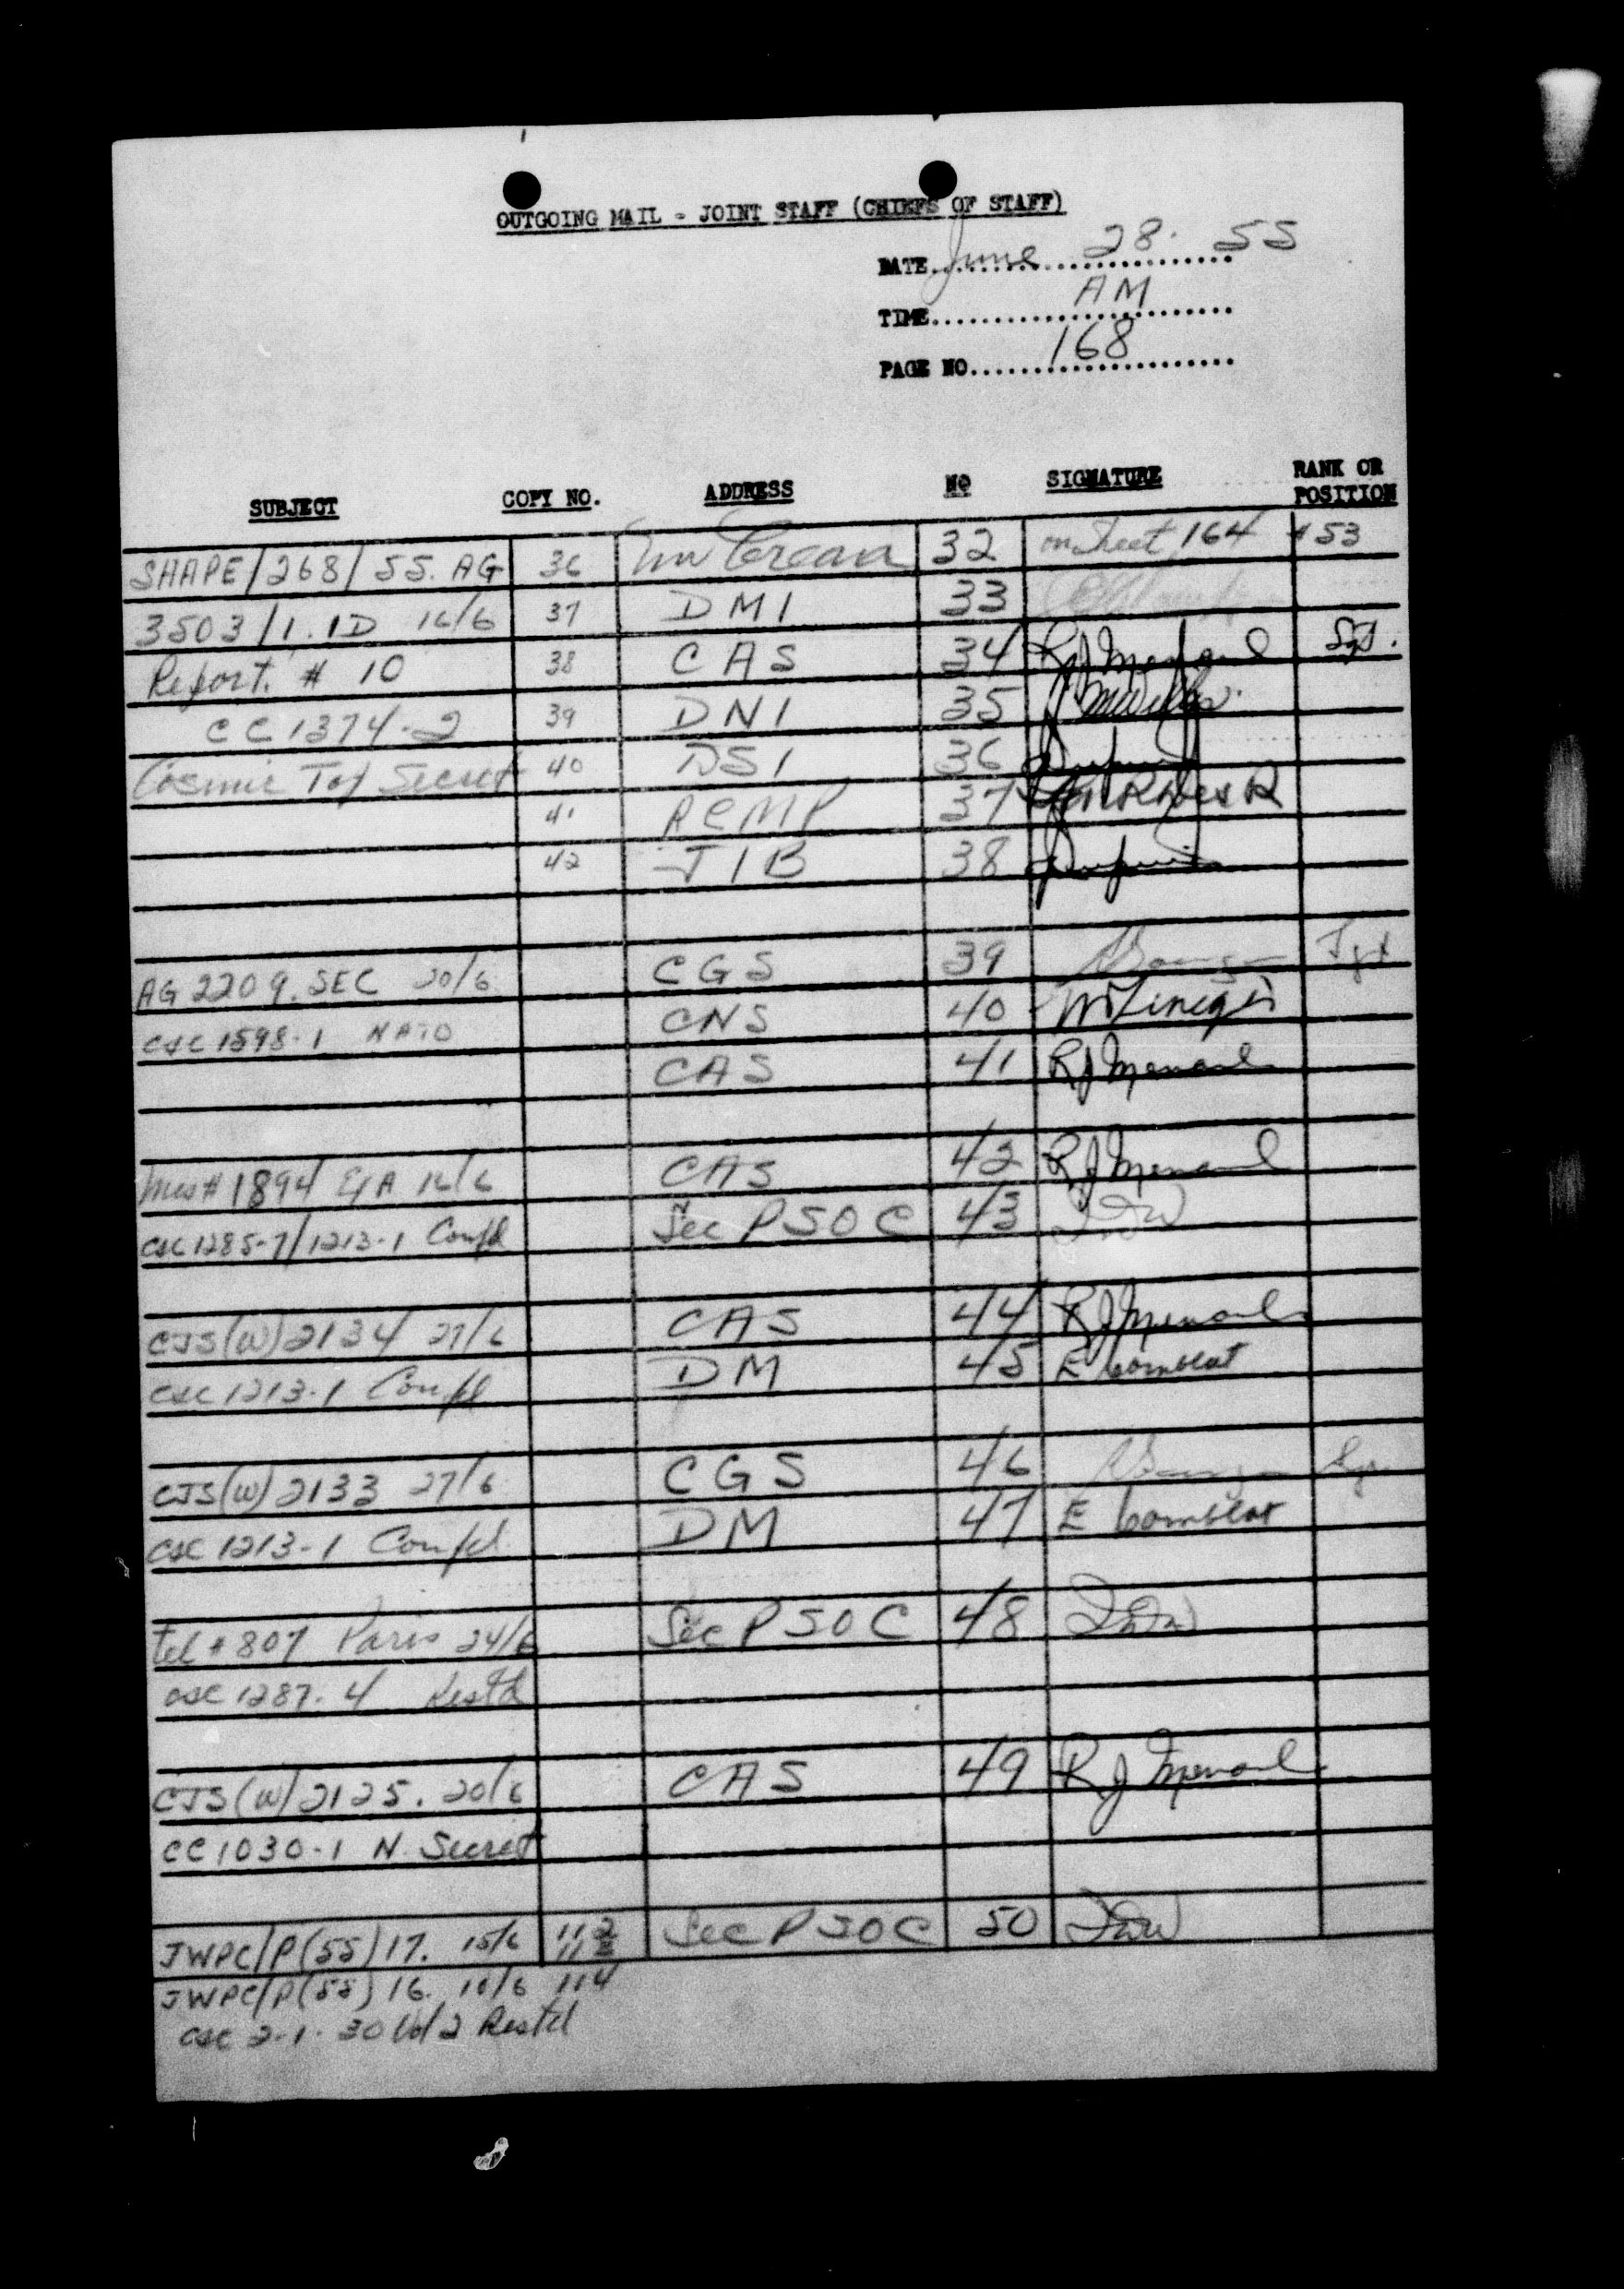 OUTGOING MAIL - JOINT STAFF (CHIEFS OF STAFF)
DATE June 28. 55
TIME AM
PAGE NO 168
SUBJECT COPY NO. ADDRESS NO SIGNATURE RANK OR POSITION
SHAPE/268/55. AG 36 Mr Crean 32 on Sheet 164 # 53
3503/1.1D 16/6 37 DMI 33
Report. # 10 38 CAS 34 RJ Menard Sgt.
CC 1374-2 39 DNI 35
Cosmic Top Secret 40 DSI 36
41 RCMP 37
42 JIB 38
AG 2209. SEC 20/6 CGS 39 Sgt
CSC 1598-1 NATO CNS 40
CAS 41 RJ Menard
Mes # 1894 E/A 16/6 CAS 42 RJ Menard
CSC 1285-7/1213-1 Confd Sec PSOC 43
CJS(W) 2134 27/6 CAS 44 RJ Menard
CSC 1213-1 Confd DM 45 E Comblat
CJS(W) 2133 27/6 CGS 46 Sgt
CSC 1213-1 Confd. DM 47 E Comblat
Tel # 807 Paris 24/6 Sec PSOC 48
CSC 1287.4 Restd
CJS(W) 2125. 20/6 CAS 49 RJ Menard
CC 1030-1 N. Secret
JWPC/P(55)17. 15/6 112 Sec PSOC 50
JWPC/P(55)16. 10/6 114
CSC 2-1-30 Vol 2 Restd